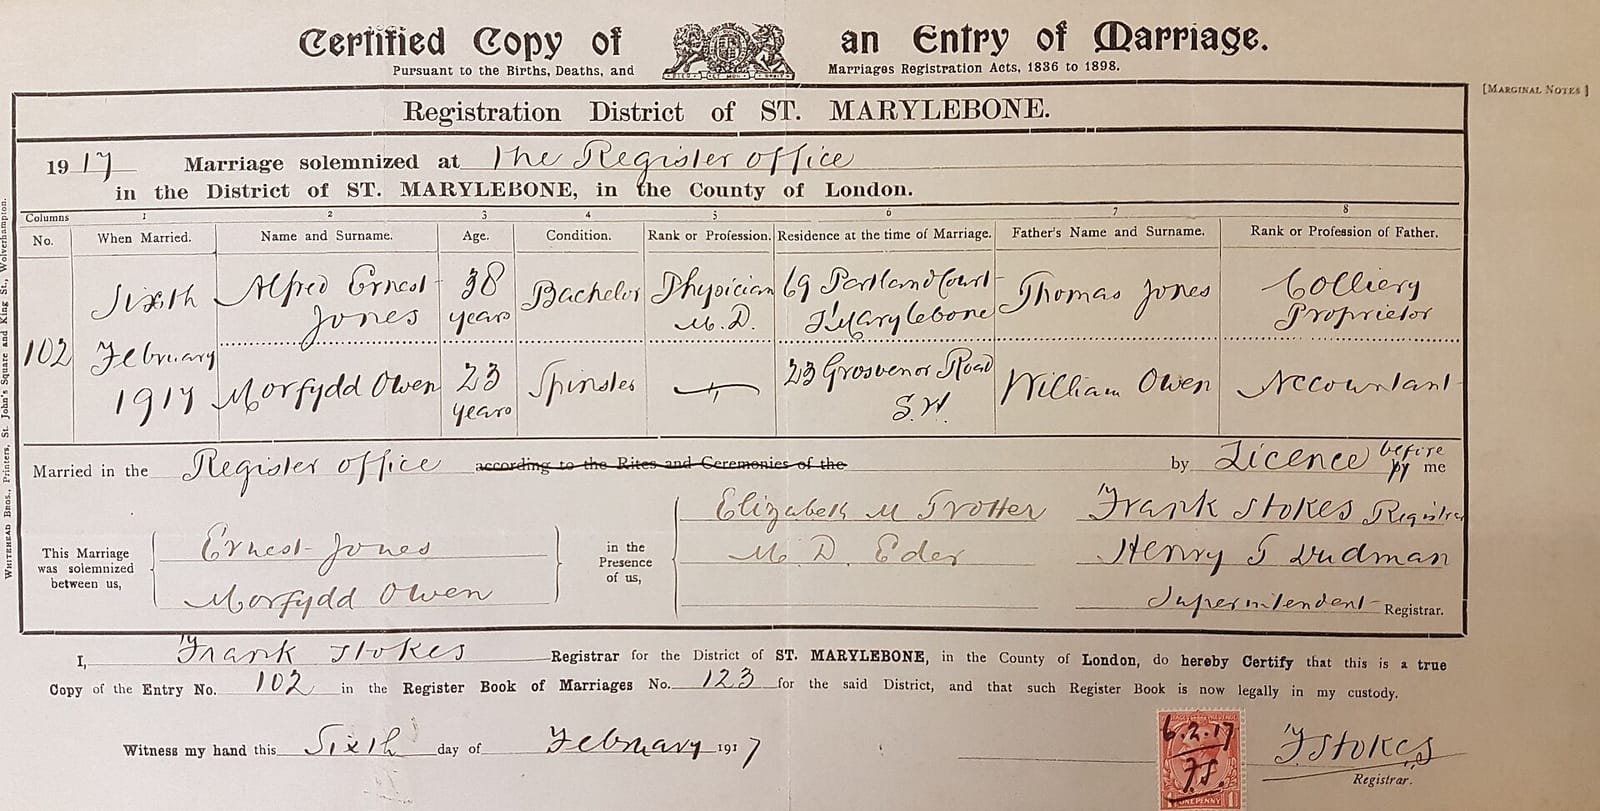 Certified Copy of an Entry of Marriage.
Pursuant to the Births, Deaths, and Marriages Registration Acts, 1836 to 1898.
[MARGINAL NOTES]
Registration District of ST. MARYLEBONE.
1917 Marriage solemnized at The Register office
in the District of ST. MARYLEBONE, in the County of London.
Columns 1 2 3 4 5 6 7 8
No. When Married. Name and Surname. Age. Condition. Rank or Profession. Residence at the time of Marriage. Father's Name and Surname. Rank or Profession of Father.
102
Sixth
February
1917
Alfred Ernest
Jones
38
years
Bachelor
Physician
M.D.
69 Portland Court
St Marylebone
Thomas Jones
Colliery
Proprietor
Morfydd Owen
23
years
Spinster
23 Grosvenor Road
S.W.
William Owen
Accountant
Married in the Register office according to the Rites and Ceremonies of the by Licence before by me
This Marriage
was solemnized
between us,
Ernest Jones
Morfydd Owen
in the
Presence
of us,
Elizabeth M Trotter
M. D. Eder
Frank Stokes Registrar
Henry T Dudman
Superintendent Registrar.
I, Frank Stokes Registrar for the District of ST. MARYLEBONE, in the County of London, do hereby Certify that this is a true
Copy of the Entry No. 102 in the Register Book of Marriages No. 123 for the said District, and that such Register Book is now legally in my custody.
Witness my hand this Sixth day of February 1917
6.2.17
F.S.
ONE PENNY
F Stokes
Registrar.
WHITEHEAD BROS., Printers, St. John's Square and King St., Wolverhampton.